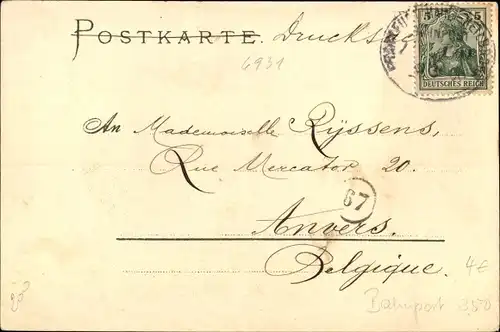 POSTKARTE. Drucks
5 5
DEUTSCHES REICH
6931
An Mademoiselle Rÿssens,
Rue Mercator 20.
67
Anvers.
Belgique. 4€
Bahnpost 250